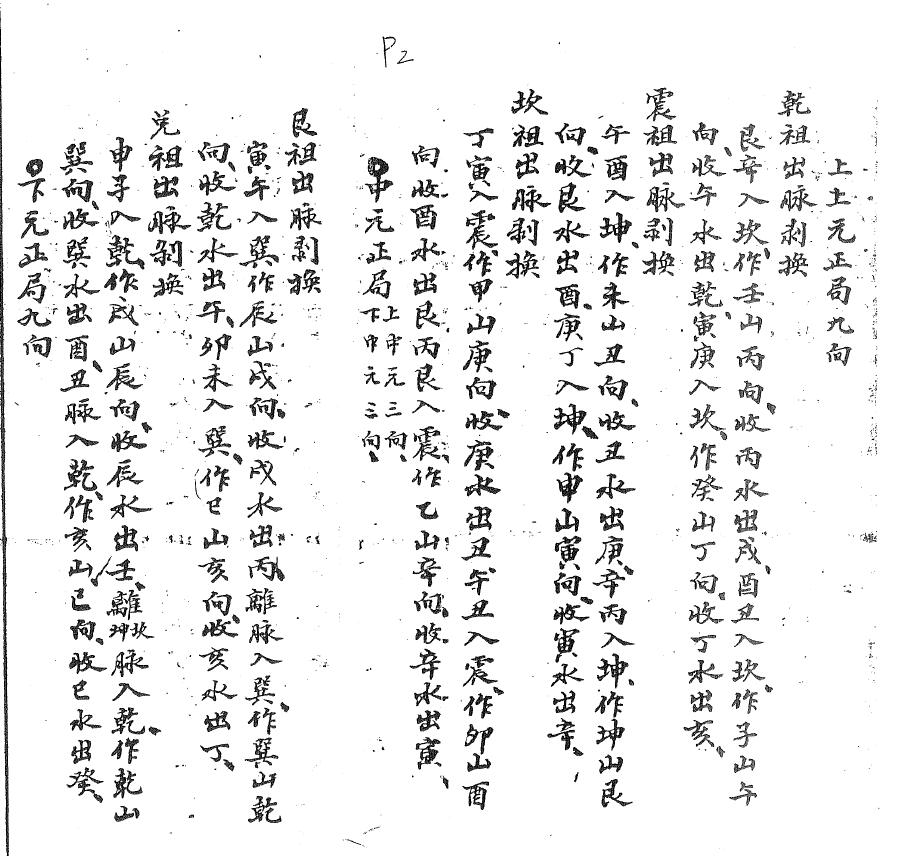 P2
上上元正局九向
乾祖出脉剥换
艮辛入坎、作壬山丙向、收丙水出戌、酉丑入坎、作子山午
向、收午水出乾、寅庚入坎、作癸山丁向、收丁水出亥、
震祖出脉剥换
午酉入坤、作未山丑向、收丑水出庚、辛丙入坤、作坤山艮
向、收艮水出酉、庚丁入坤、作申山寅向、收寅水出辛、
坎祖出脉剥换
丁寅入震、作甲山庚向、收庚水出丑、午丑入震、作卯山酉
向收酉水出艮、丙艮入震、作乙山辛向、收辛水出寅、
中元正局上中元三向、下中元三向、
艮祖出脉剥换
寅午入巽、作辰山戌向、收戌水出丙、離脉入巽、作巽山乾
向、收乾水出午、卯未入巽、作巳山亥向、收亥水出丁、
兑祖出脉剥换
申子入乾、作戌山辰向、收辰水出壬、離坎坤脉入乾、作乾山
巽向、收巽水出酉、丑脉入乾、作亥山巳向、收巳水出癸、
下元正局九向